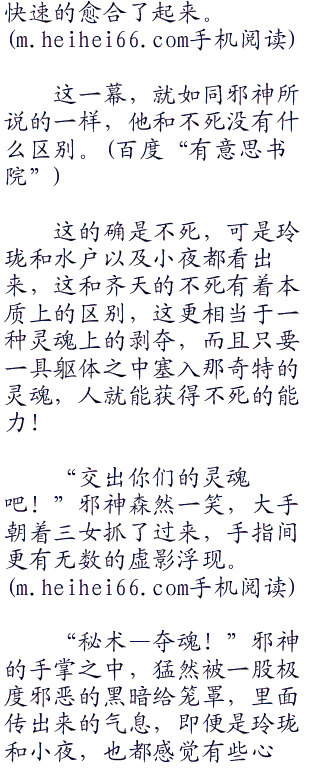 快速的愈合了起来。
(m.heihei66.com手机阅读)
这一幕，就如同邪神所
说的一样，他和不死没有什
么区别。(百度“有意思书
院”)
这的确是不死，可是玲
珑和水户以及小夜都看出
来，这和齐天的不死有着本
质上的区别，这更相当于一
种灵魂上的剥夺，而且只要
一具躯体之中塞入那奇特的
灵魂，人就能获得不死的能
力！
“交出你们的灵魂
吧！”邪神森然一笑，大手
朝着三女抓了过来，手指间
更有无数的虚影浮现。
(m.heihei66.com手机阅读)
“秘术—夺魂！”邪神
的手掌之中，猛然被一股极
度邪恶的黑暗给笼罩，里面
传出来的气息，即便是玲珑
和小夜，也都感觉有些心